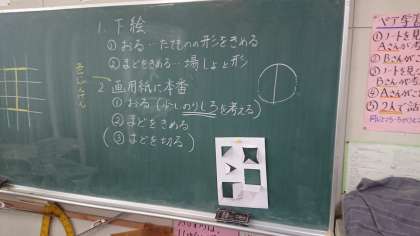 1. 下絵
① おる…たてものの形をきめる
② まどをきめる…場しょと形
2 画用紙に本番
① おる (少しのりしろを考える)
② まどをきめる
(③ まどを切る)
ペア学習
① ノートを見
Aさんが
② Bさんがこ
③ ノートを見
Bさんが
④ Aさんがこ
⑤ 2人で話